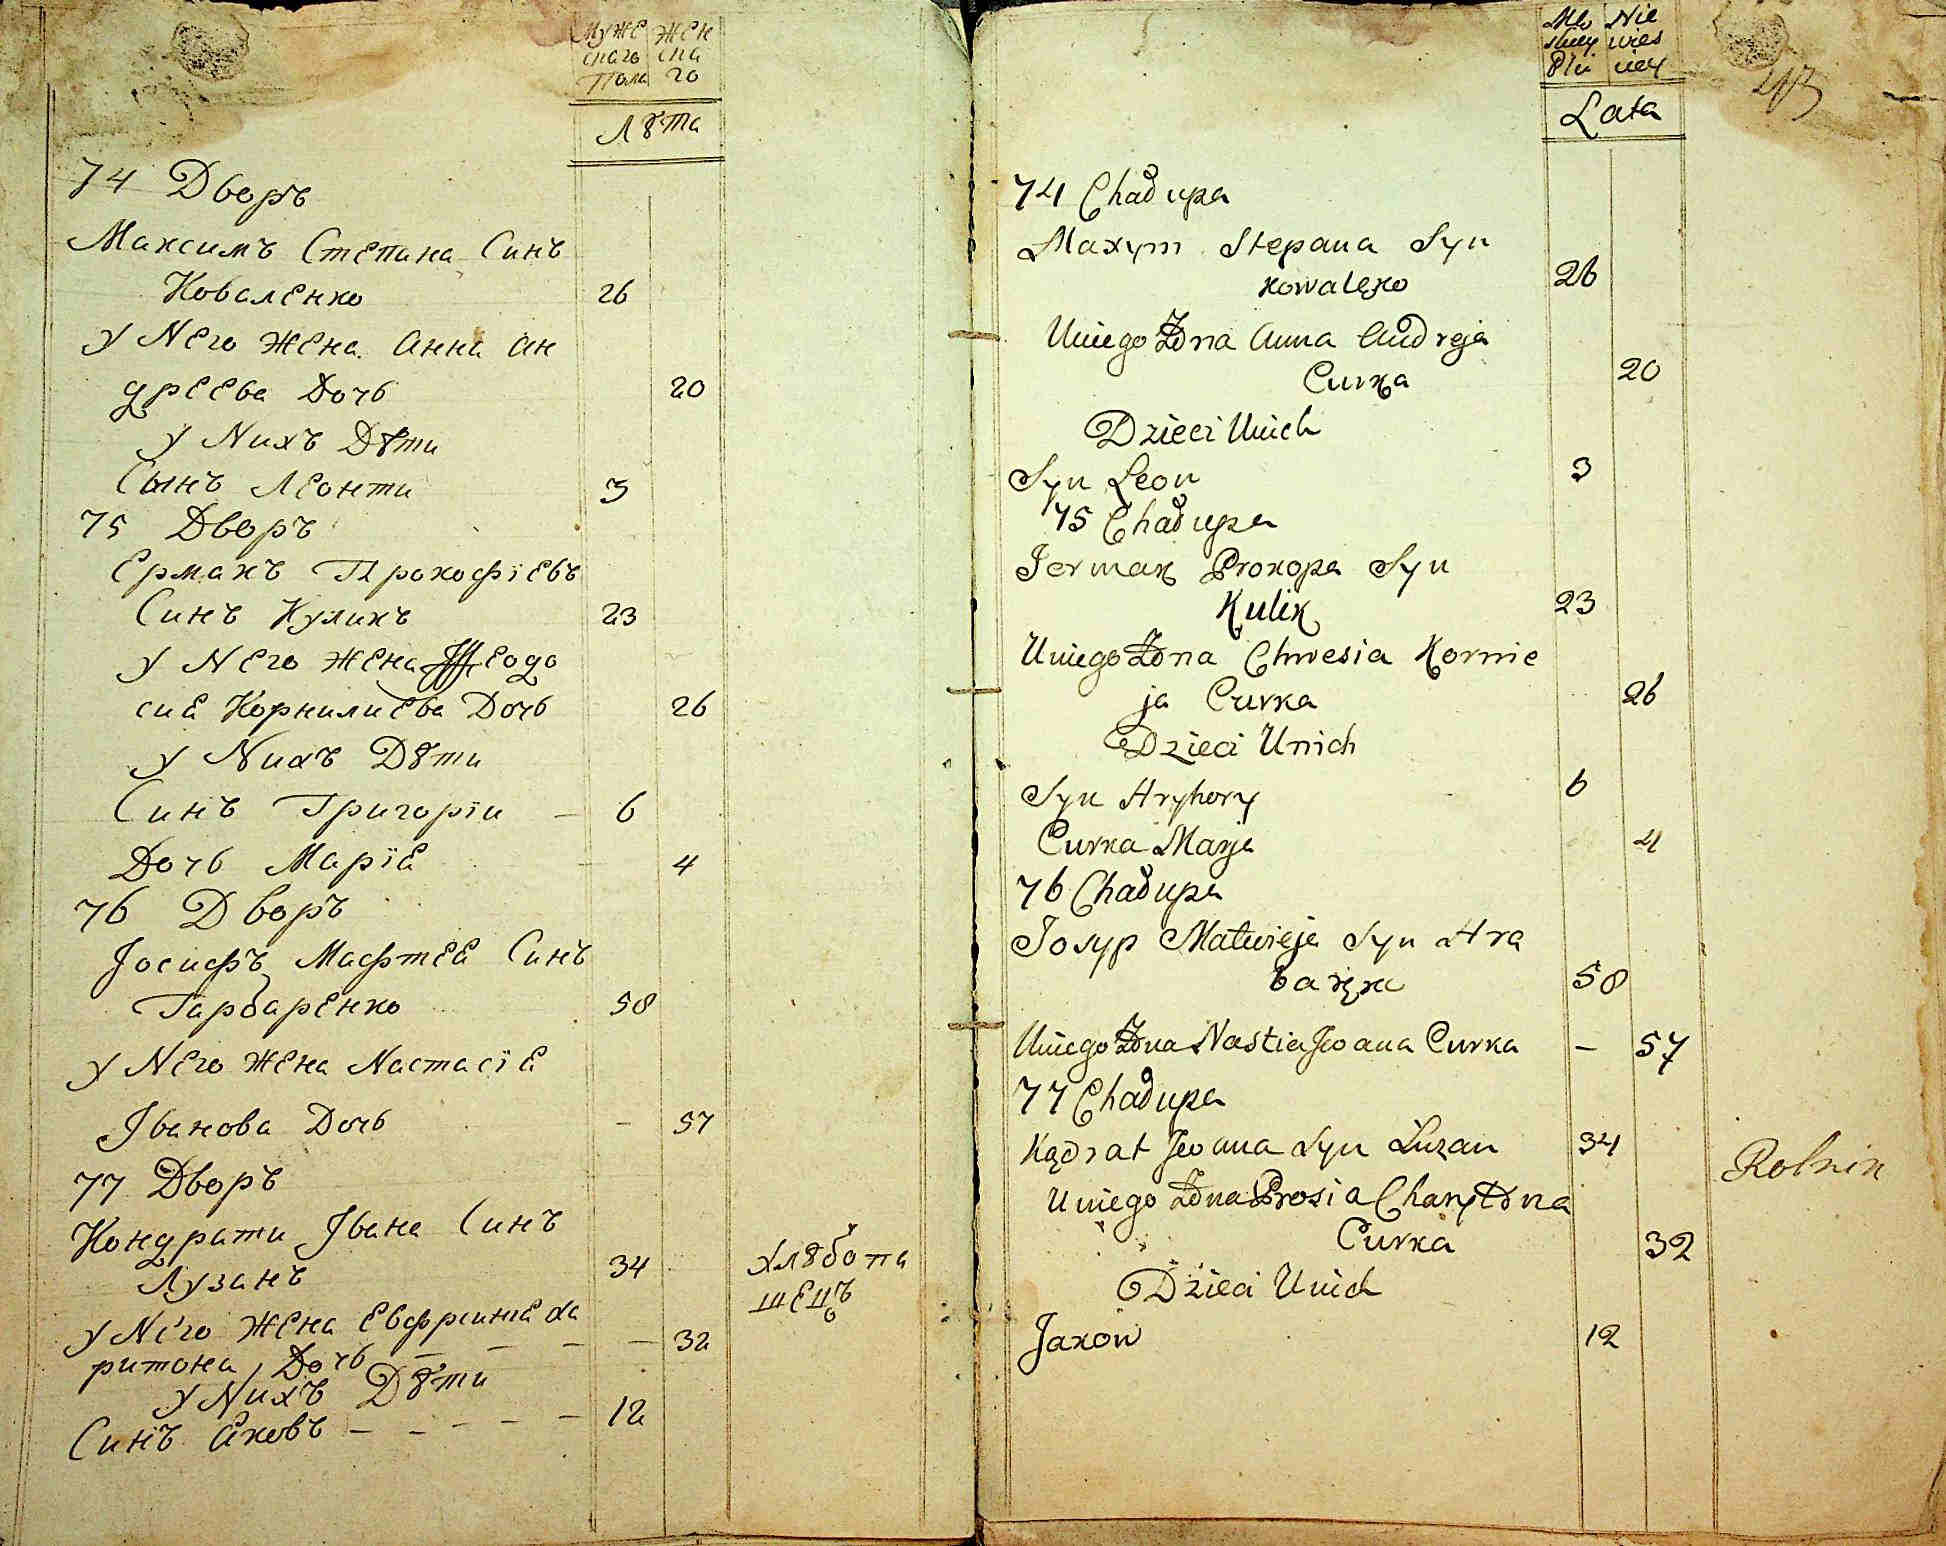 Муже жен
скаго ска
Пола го
Лѣта
74 Дворъ
Максимъ Степана Синъ
Коваленко 26
у Него жена Анна Ан
дреева Дочь 20
у Нихъ Дѣти
Сынъ Леонти 3
75 Дворъ
Ермакъ Прокофїевъ
Синъ Куликъ 23
у Него жена Феодо
сиа Корнилиева Дочь 26
у Нихъ Дѣти
Синъ Григорїи 6
Дочь Марїа 4
76 Дворъ
Іосифъ Мафтеа Синъ
Гарбаренко 58
у Него жена Настасїа
Іванова Дочь - 57
77 Дворъ
Кондрати Івана Синъ
Лузанъ 34 хлѣбопа
шецъ
у Него жена Евфросиниа Ха
ритона Дочь - 32
у Нихъ Дѣти
Синъ Аковъ 12
Nie
wies
Płci ciey
Lata
74 Chałupa
Maxym Stepana Syn
Kowalęko 26
Uniego Żona Anna Andreja
Curka 20
Dzieci Unich
Syn Leon 3
75 Chałupa
Jermak Prokopa Syn
Kulik 23
Uniego Żona Chwesia Kornie
ja Curka 26
Dzieci Unich
Syn Hryhory 6
Curka Marja 4
76 Chałupa
Josyp Matwieja Syn Hra
58
Uniego Żona Nastia Jwana Curka - 57
77 Chałupa
Kądrat Jwana Syn Łuzan 34 Rolnik
Uniego Żona Prosia Charytona
Curka 32
Dzieci Unich
Jakow 12